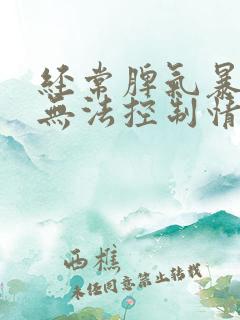 經常脾氣暴
無法控制情
西樵
未经同意禁止转载